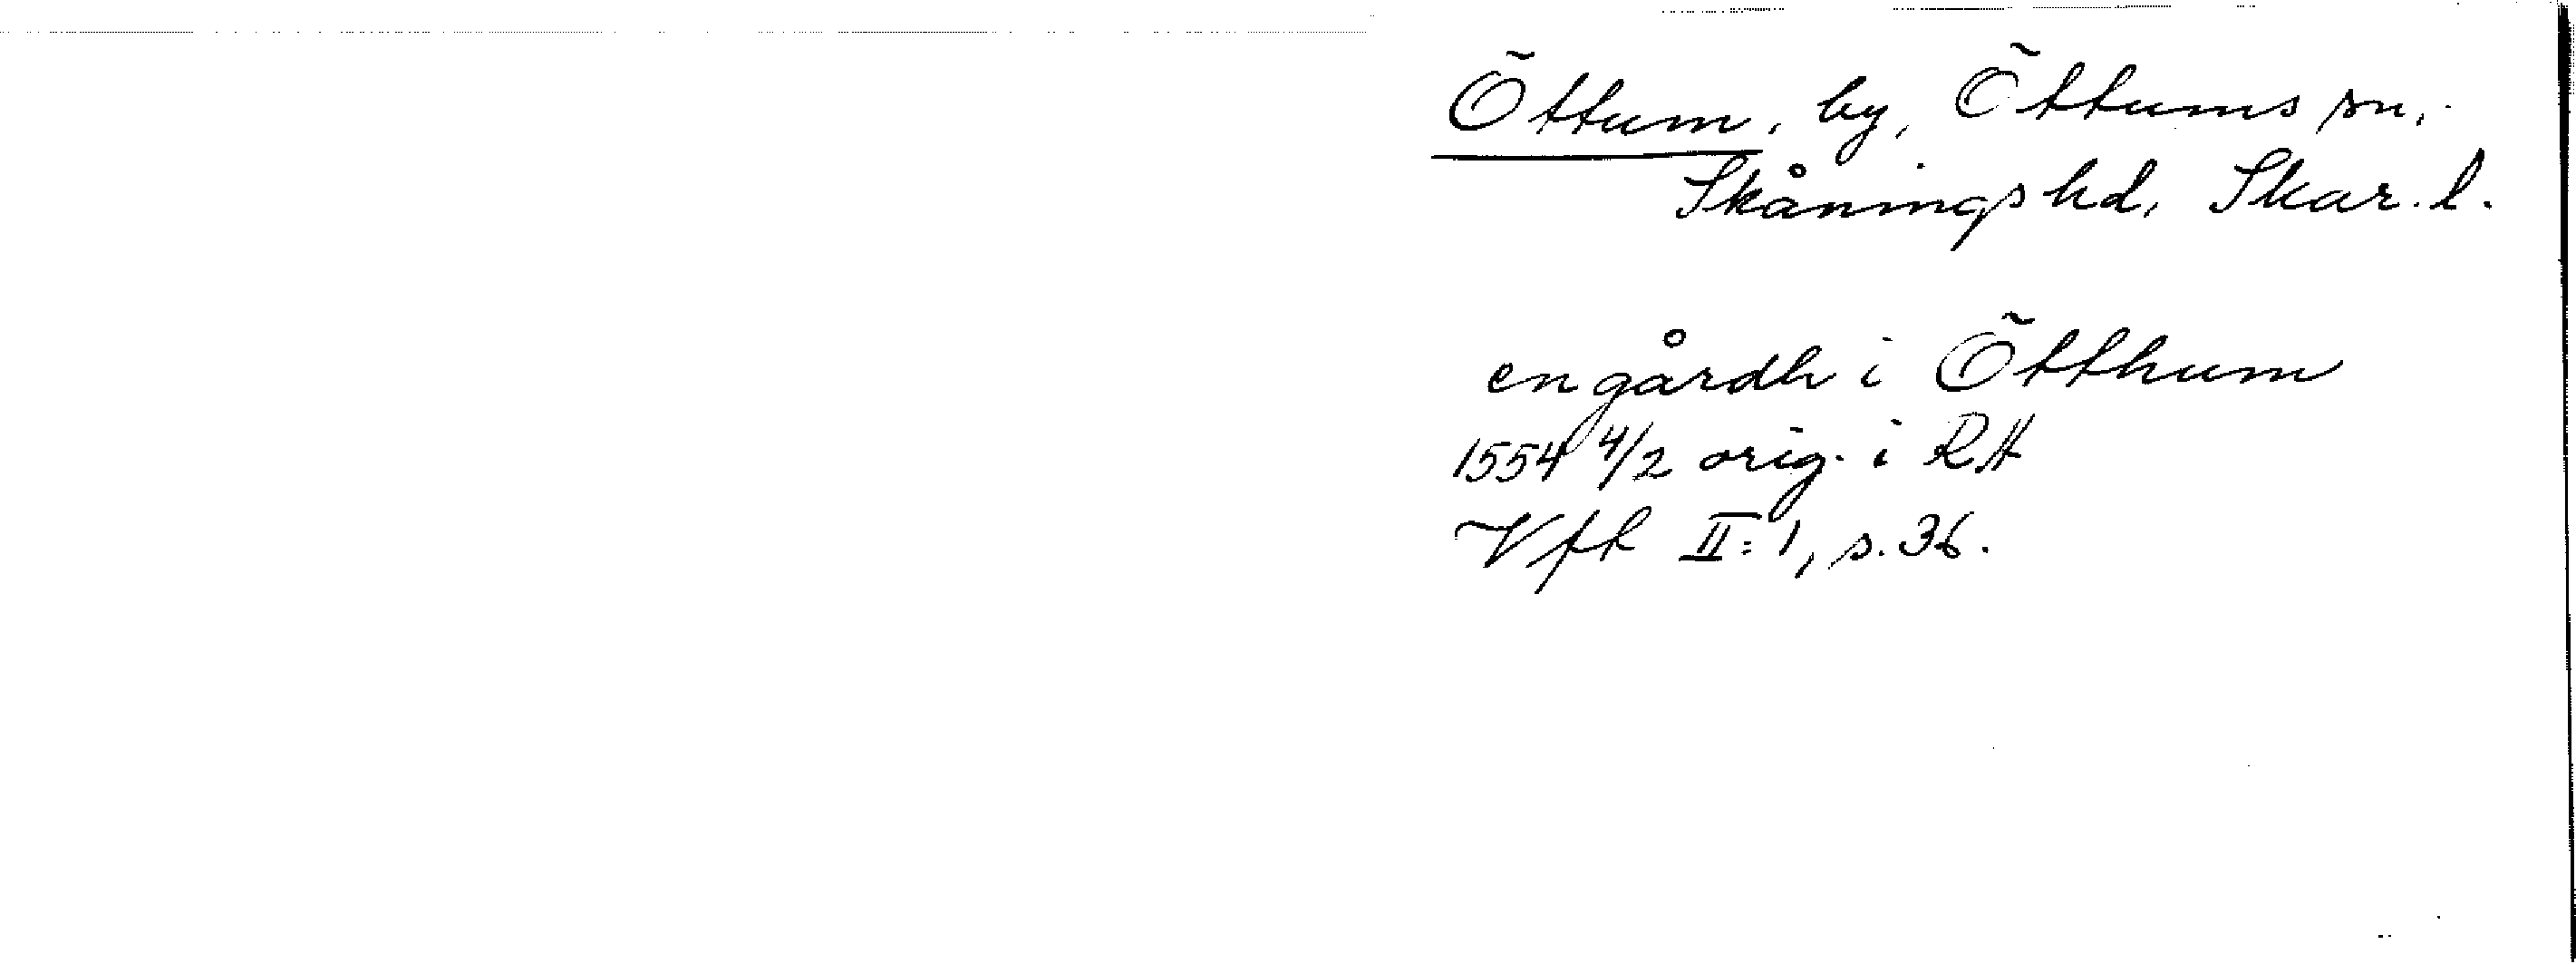 Öttum, by, Öttums sn,
Skånings hd, Skar. l.
en gårdh i Ötthum
1554 4/2 orig. i RA
Vfk II:1, s. 36.